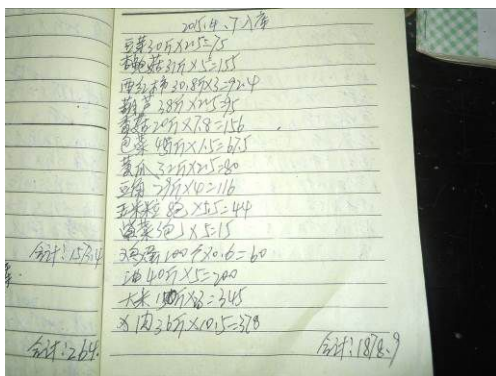 2015.4.7入库
豆芽30斤×2.5=75
杏鲍菇31斤×5=155
西红柿30.8斤×3=92.4
葫芦38斤×2.5=95
香菇20斤×7.8=156
包菜45斤×1.5=67.5
黄瓜32斤×2.5=80
豆角29斤×4=116
玉米粒8包×5.5=44
3包×5=15
鸡蛋100个×0.6=60
油40斤×5=200
大米 斤×3=345
肉36斤×10.5=378
合计:1878.9
合计:1573.4
合计:264.